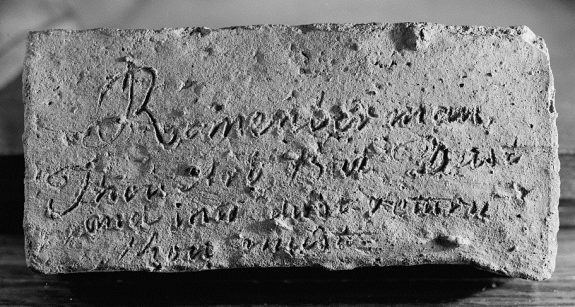 Remember man,
Thou art but Dust
and into dust return
thou must